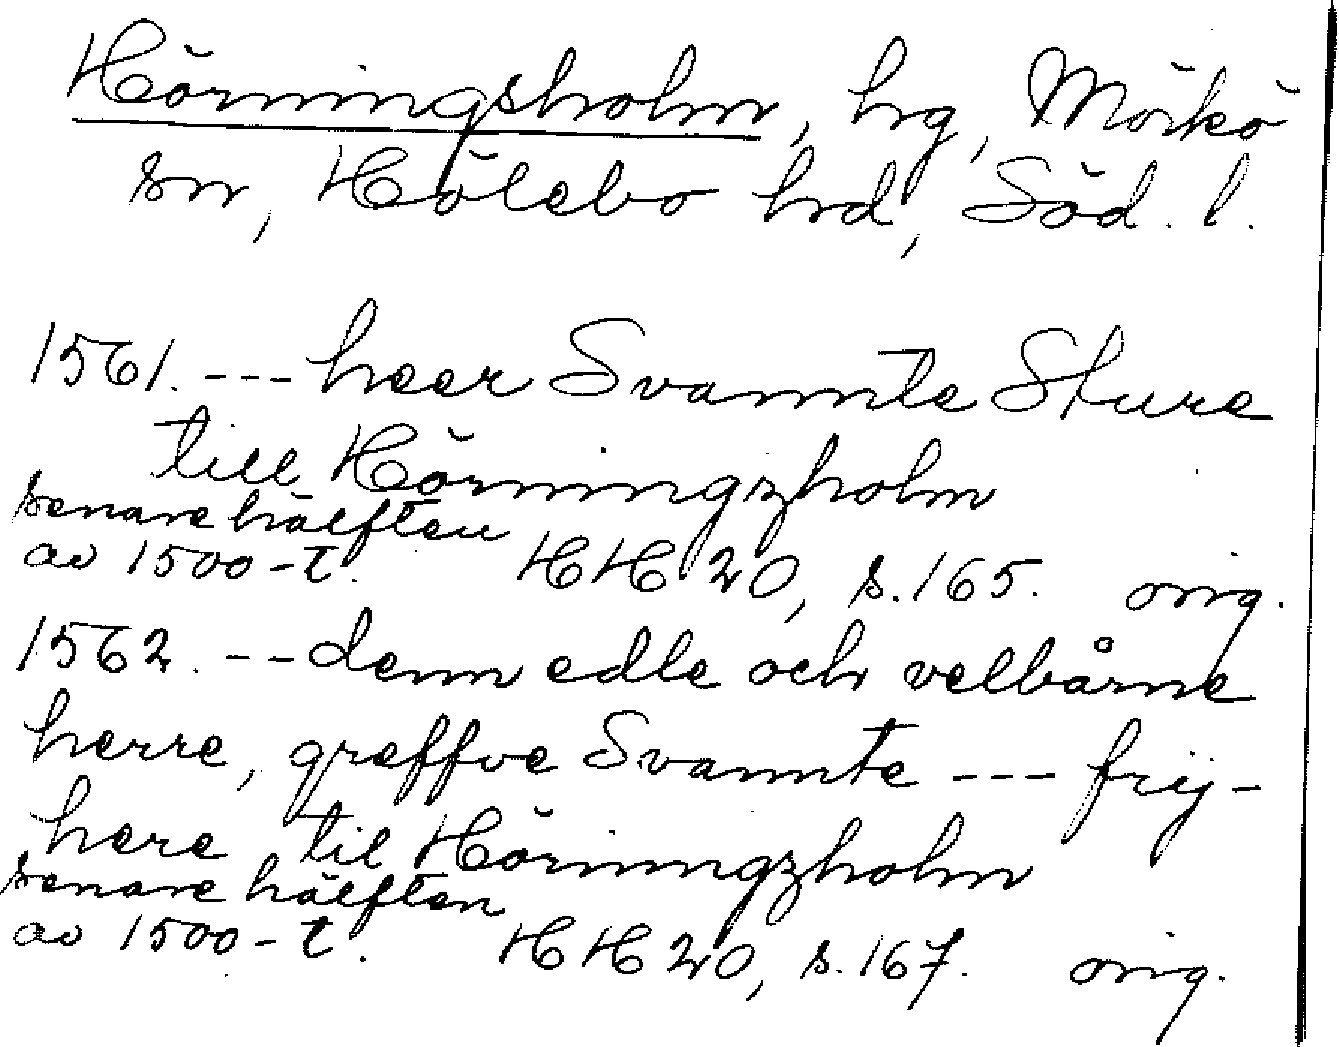 Hörningsholm, hrg, Mörkö
sn, Hölebo hrd, Söd. l.
1561. --- heer Svannte Sture
till Hörningzholm
senare hälften
av 1500-t. HH 20, s. 165. orig.
1562. -- denn edle och velbårne
herre, greffve Svannte --- frij-
here til Hörningzholm
senare hälften
av 1500-t. HH 20, s. 167. orig.